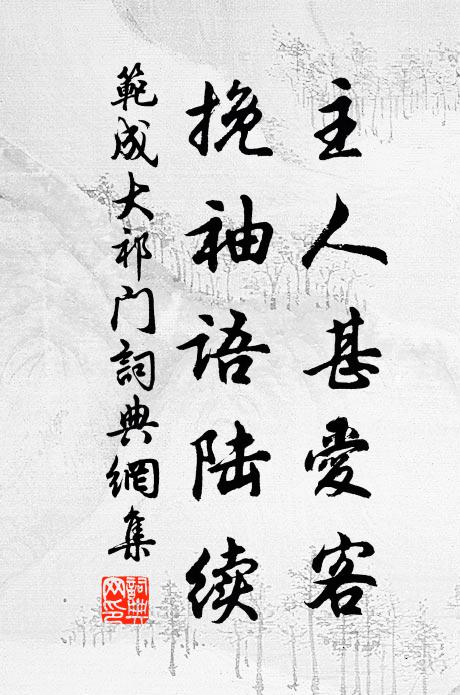 主人甚愛客
挽袖语陆续
範成大祁门詞典網集
詞典网印